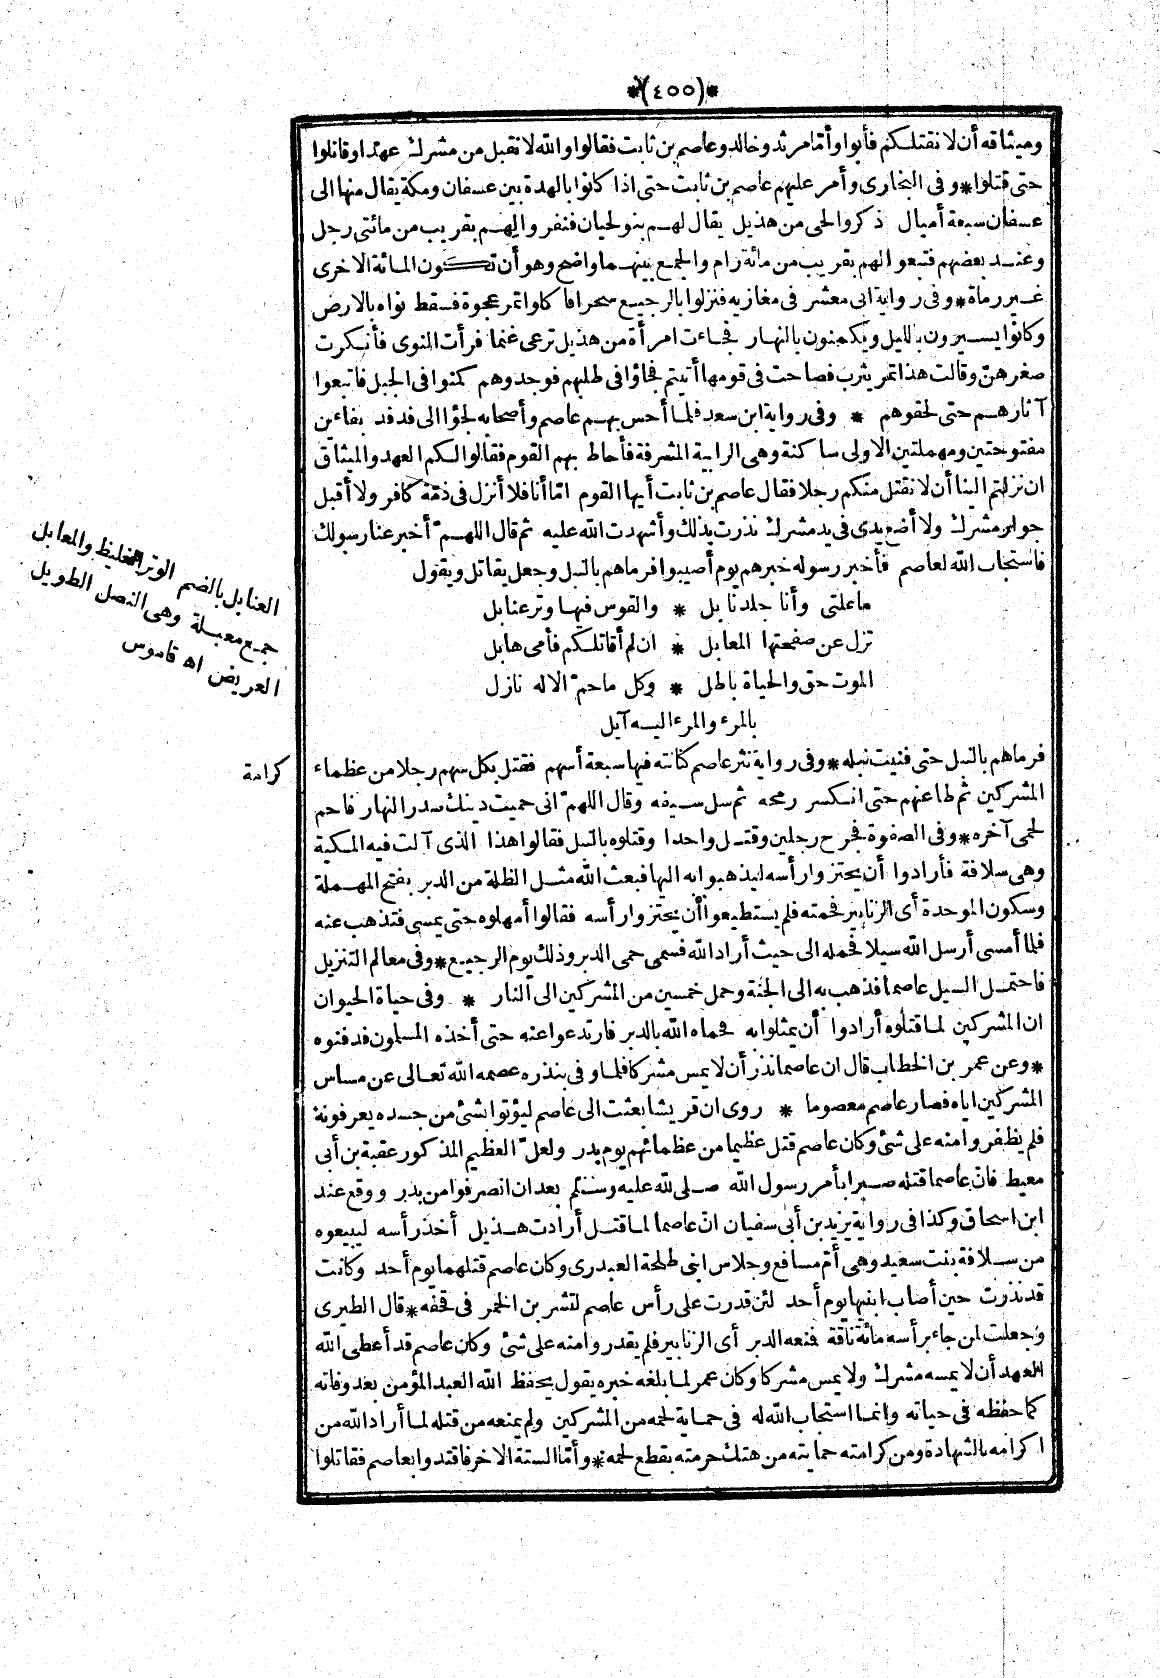 *(٤٥٥)*
وميثاقه أن لا نقتلكم فأبوا وأمّا مرثد وخالد وعاصم بن ثابت فقالوا والله لا نقبل من مشرك عهدا وقاتلوا
حتى قتلوا * وفى البخارى وأمر عليهم عاصم بن ثابت حتى اذا كانوا بالهدة بين عسفان ومكة يقال منها الى
عسفان سبعة أميال ذكروا لحى من هذيل يقال لهم بنو لحيان فنفروا لهم بقريب من مائتى رجل
وعند بعضهم فتبعوا لهم بقريب من مائة رام والجمع بينهما واضح وهو أن تكون المائة الاخرى
غير رماة * وفى رواية ابى معشر فى مغازيه فنزلوا بالرجيع سحرا فأكلوا تمر عجوة فسقط نواه بالارض
وكانوا يسيرون بالليل ويكمنون بالنهار فجاءت امرأة من هذيل ترعى غنما فرأت النوى فأنكرت
صغرهنّ وقالت هذا تمر يثرب فصاحت فى قومها أتيتم فجاؤا فى طلبهم فوجدوهم كمنوا فى الجبل فاتبعوا
آثارهم حتى لحقوهم * وفى رواية ابن سعد فلما أحس بهم عاصم وأصحابه لجؤا الى فدفد بفاءين
مفتوحتين ومهملتين الاولى ساكنة وهى الرابية المشرفة فأحاط بهم القوم فقالوا لكم العهد والميثاق
ان نزلتم الينا أن لا نقتل منكم رجلا فقال عاصم بن ثابت أيها القوم امّا أنا فلا أنزل فى ذمّة كافر ولا أقبل
جوار مشرك ولا أضع يدى فى يد مشرك نذرت بذلك وأشهدت الله عليه ثم قال اللهمّ أخبر عنا رسولك
فاستجاب الله لعاصم فأخبر رسوله خبرهم يوم أصيبوا فرماهم بالنبل وجعل يقاتل ويقول
ما علتى وأنا جلد نابل * والقوس فيها وتر عنابل
تزل عن صفحتها المعابل * ان لم أقاتلكم فأمى هابل
الموت حق والحياة باطل * وكل ما حمّ الاله نازل
بالمرء والمرء اليه آيل
العنابل بالضم الوتر الغليظ والمعابل
جمع معبلة وهى النصل الطويل
العريض اه قاموس
فرماهم بالنبل حتى فنيت نبله * وفى رواية نثر عاصم كنانته فيها سبعة أسهم فقتل بكل سهم رجلا من عظماء
كرامة
المشركين ثم طاعنهم حتى انكسر رمحه ثم سل سيفه وقال اللهمّ انى حميت دينك صدر النهار فاحم
لحمى آخره * وفى الصفوة فجرح رجلين وقتل واحدا وقتلوه بالنبل فقالوا هذا الذى آلت فيه المكية
وهى سلافة فأرادوا أن يحتزوا رأسه ليذهبوا به اليها فبعث الله مثل الظلة من الدبر بفتح المهملة
وسكون الموحدة أى الزنابير فحمته فلم يستطيعوا أن يحتزوا رأسه فقالوا أمهلوه حتى يمسى فتذهب عنه
فلما أمسى أرسل الله سيلا فحمله الى حيث أراد الله فسمى حمى الدبر وذلك يوم الرجيع * وفى معالم التنزيل
فاحتمل السيل عاصما فذهب به الى الجنة وحمل خمسين من المشركين الى النار * وفى حياة الحيوان
ان المشركين لما قتلوه أرادوا أن يمثلوا به فحماه الله بالدبر فارتدعوا عنه حتى أخذه المسلمون فدفنوه
* وعن عمر بن الخطاب قال ان عاصما نذر أن لا يمس مشركا فلما وفى بنذره عصمه الله تعالى عن مساس
المشركين اياه فصار عاصم معصوما * روى ان قريشا بعثت الى عاصم ليؤتوا بشئ من جسده يعرفونه
فلم يظفروا منه على شئ وكان عاصم قتل عظيما من عظمائهم يوم بدر ولعلّ العظيم المذكور عقبة بن أبى
معيط فانّ عاصما قتله صبرا بأمر رسول الله صلى الله عليه وسلم بعد ان انصرفوا من بدر ووقع عند
ابن اسحاق وكذا فى رواية يزيد بن أبى سفيان انّ عاصما لما قتل أرادت هذيل أخذ رأسه ليبيعوه
من سلافة بنت سعيد وهى أمّ مسافع وجلاس ابنى طلحة العبدرى وكان عاصم قتلهما يوم أحد وكانت
قد نذرت حين أصاب ابنيها يوم أحد لئن قدرت على رأس عاصم لتشربن الخمر فى قحفه * قال الطبرى
وجعلت لمن جاء برأسه مائة ناقة فمنعه الدبر أى الزنابير فلم يقدروا منه على شئ وكان عاصم قد أعطى الله
العهد أن لا يمسه مشرك ولا يمس مشركا وكان عمر لما بلغه خبره يقول يحفظ الله العبد المؤمن بعد وفاته
كما حفظه فى حياته وانما استجاب الله له فى حماية لحمه من المشركين ولم يمنعه من قتله لما أراد الله من
اكرامه بالشهادة ومن كرامته حمايته من هتك حرمته بقطع لحمه * وأمّا الستة الاخر فاقتدوا بعاصم فقاتلوا